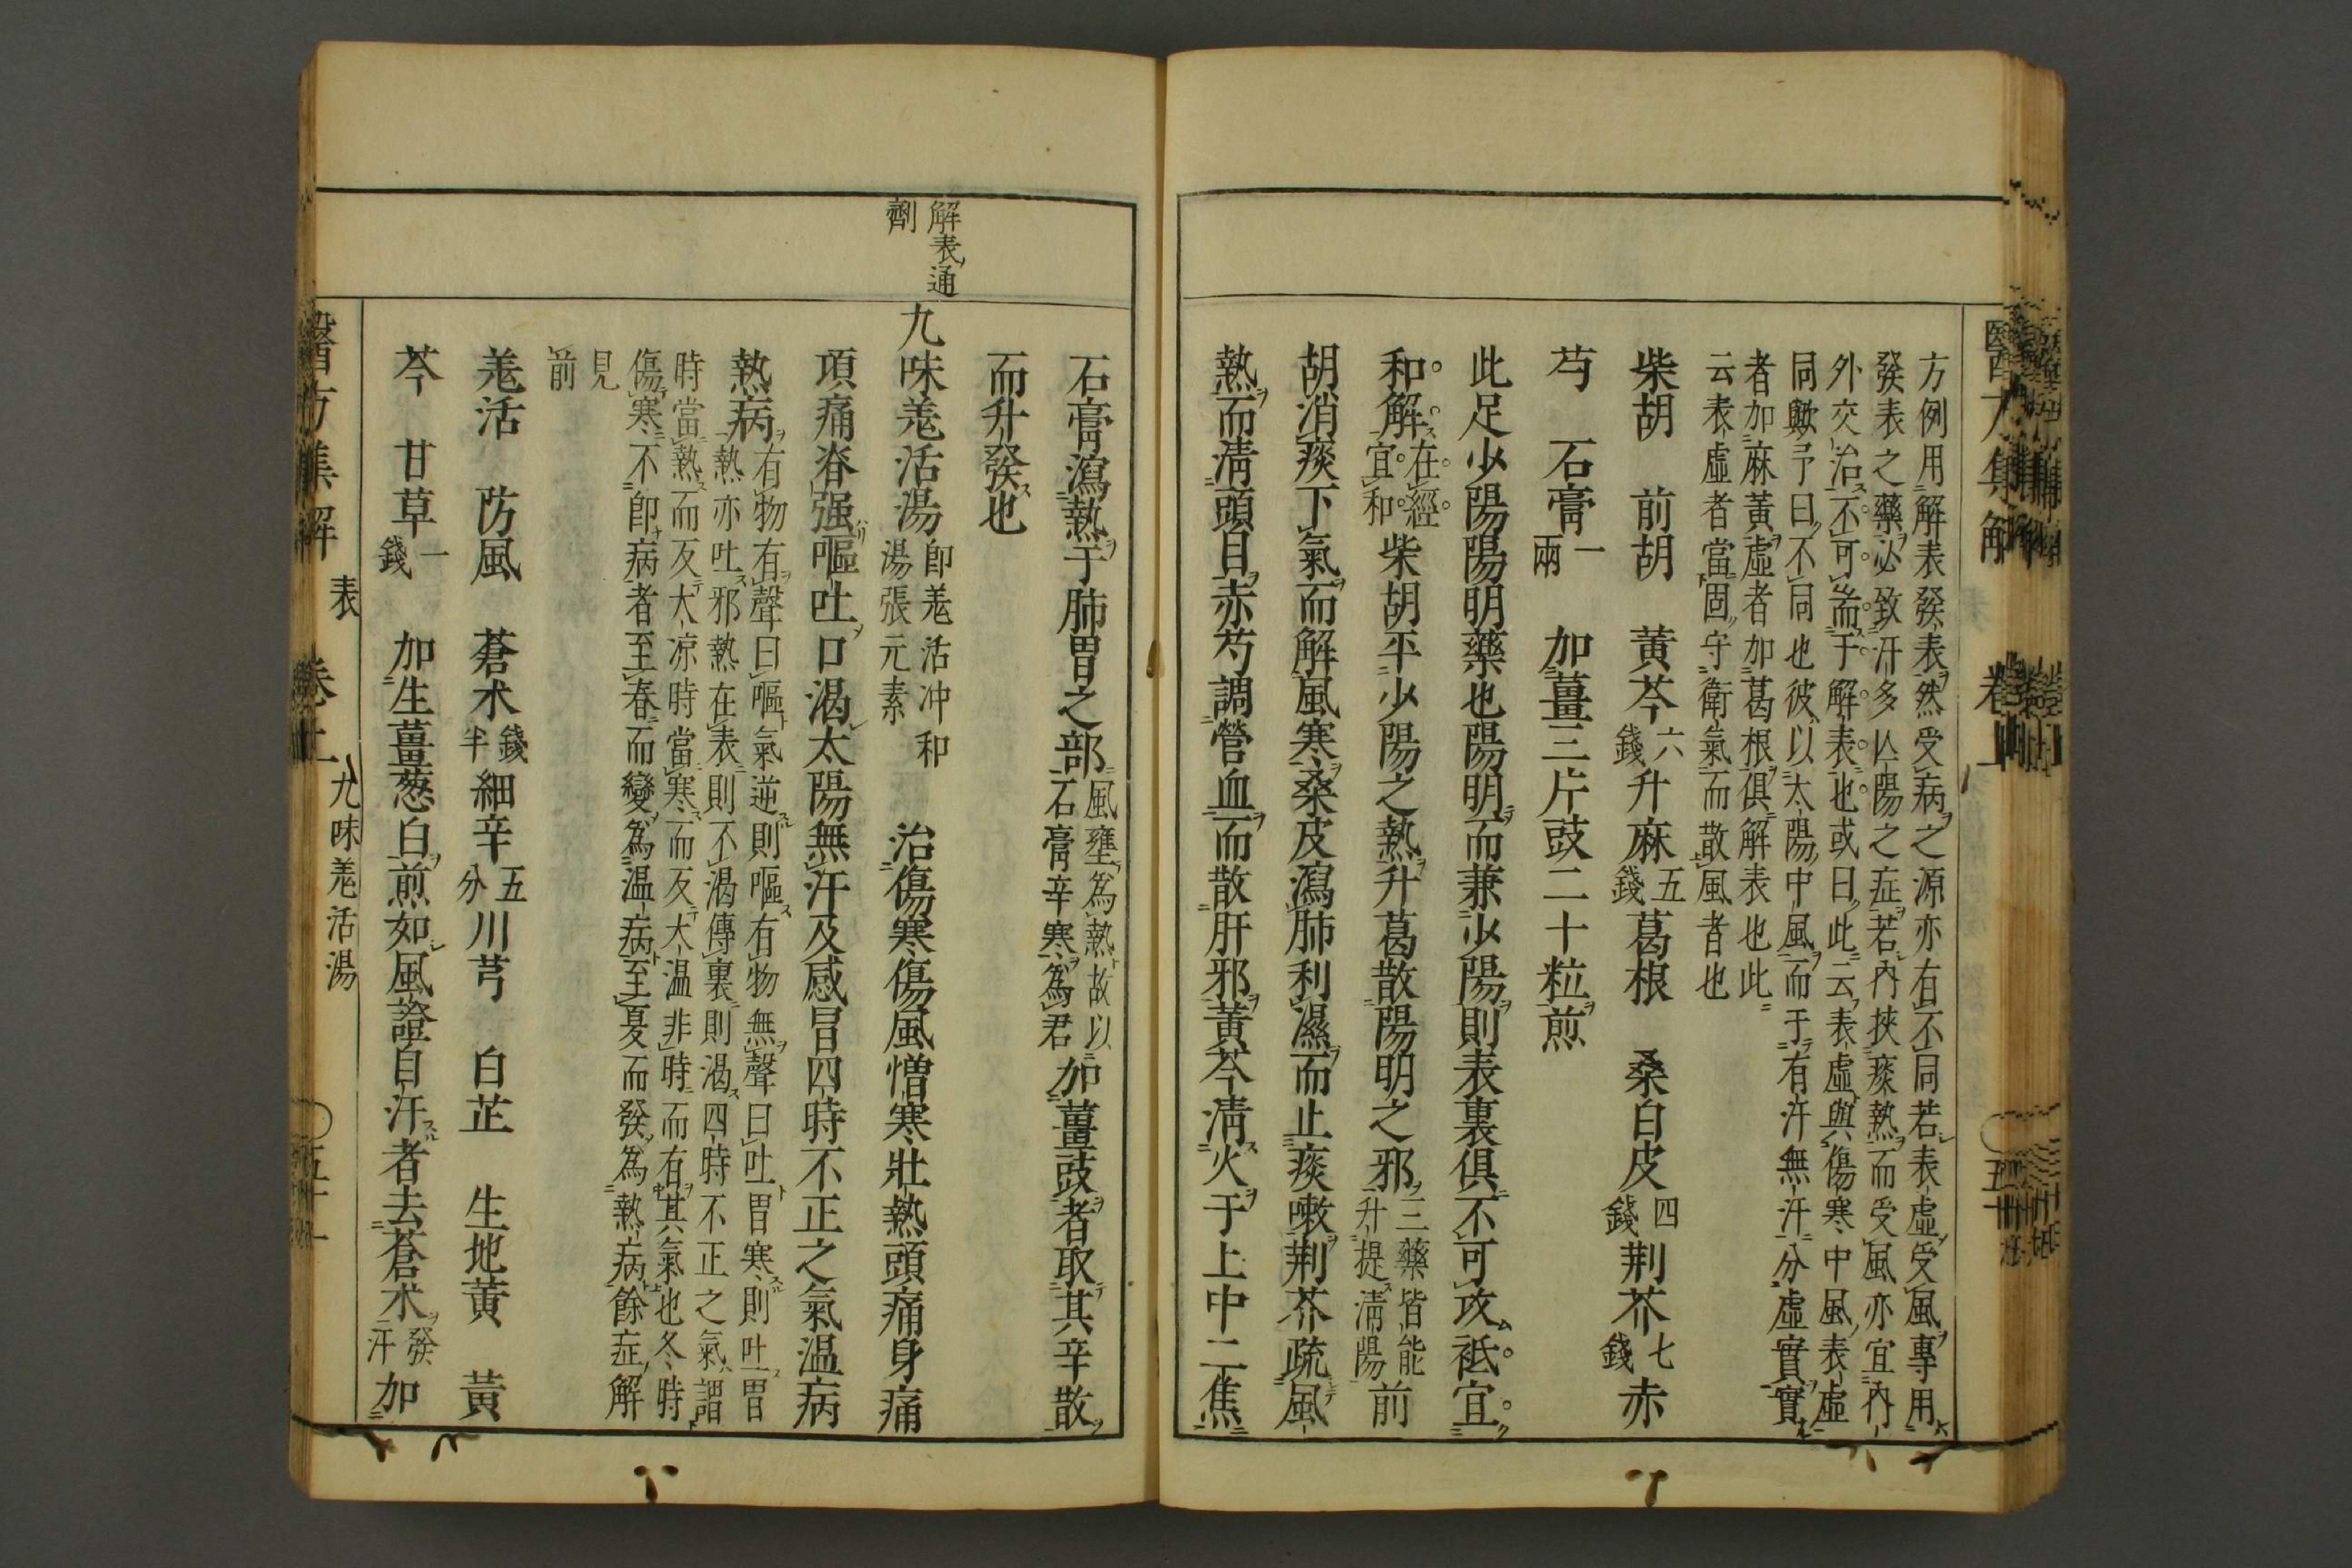 方例用解表發表然受病之源亦有不同若表虛受風專用
發表之藥必致汗多亾陽之症若內挾痰熱而受風亦宜內
外交治不可耑于解表也或曰此云表虛與傷寒中風表虛
同歟予曰不同也彼以太陽中風而于有汗無汗分虛實實
者加麻黃虛者加葛根俱解表也此
云表虛者當固守衛氣而散風者也
柴胡 前胡 黄芩六錢升麻五錢葛根 桑白皮四錢荆芥七錢赤
芍 石膏一兩 加薑三片豉二十粒煎
此足少陽陽明藥也陽明而兼少陽則表裏俱不可攻祗宜
和解在經宜和柴胡平少陽之熱升葛散陽明之邪三藥皆能升提淸陽前
胡消痰下氣而解風寒桑皮瀉肺利濕而止痰嗽荆芥疏風
熱而淸頭目赤芍調營血而散肝邪黄芩淸火于上中二焦
醫方集解 卷上 ○五十
石膏瀉熱于肺胃之部風壅為熱故以石膏辛寒為君加薑豉者取其辛散
而升發也
解表通
劑
九味羗活湯卽羗活冲和湯張元素 治傷寒傷風憎寒壯熱頭痛身痛
項痛脊强嘔吐口渴太陽無汗及感冒四時不正之氣温病
熱病有物有聲曰嘔氣逆則嘔有物無聲曰吐胃寒則吐胃
熱亦吐邪熱在表則不渴傳裏則渴四時不正之氣謂
時當熱而反大凉時當寒而反大温非時而有其氣也冬時
傷寒不卽病者至春而變為温病至夏而發為熱病餘症解
見
前
羗活 防風 蒼朮錢半細辛五分川芎 白芷 生地黄 黄
芩 甘草一錢 加生薑葱白煎如風證自汗者去蒼朮發汗加
醫方集解 表 卷上 九味羗活湯 ○五十一